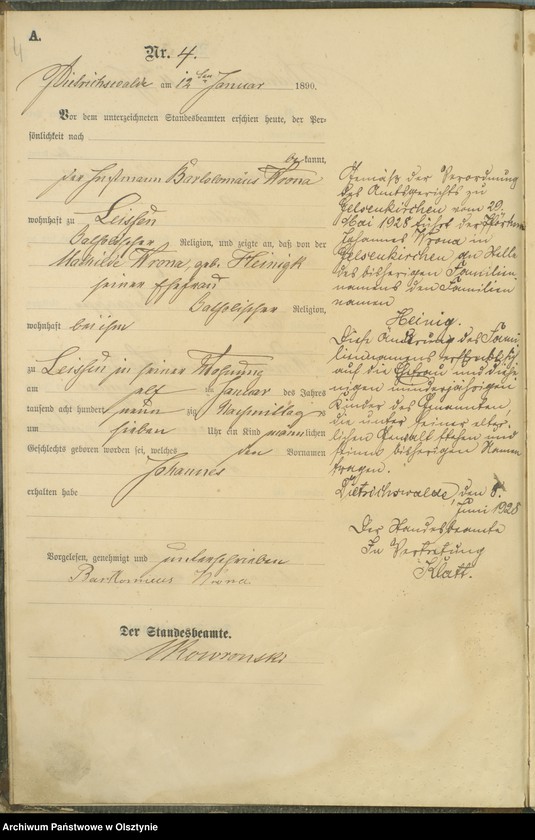 4
A.
Nr. 4.
Dietrichswalde am 12ten Januar 1890.
Vor dem unterzeichneten Standesbeamten erschien heute, der Per-
sönlichkeit nach
be kannt,
der Bartolomäus Wrona
wohnhaft zu Leissen
katholischer Religion, und zeigte an, daß von der
Mathilde Wrona, geb. Heinigk
seiner Ehefrau
katholischer Religion,
wohnhaft bei ihm
zu Leissen in seiner Wohnung
am elf ten Januar des Jahres
tausend acht hundert neun zig Nachmittags
um sieben Uhr ein Kind männlichen
Geschlechts geboren worden sei, welches den Vornamen
Johannes
erhalten habe
Vorgelesen, genehmigt und unterschrieben
Bartlomeus Wrona
Der Standesbeamte.
Skowronski
Gemäß der Verordnung
des Amtsgerichts zu
Gelsenkirchen vom 29.
Mai 1928 führt der
Johannes Wrona in
Gelsenkirchen an Stelle
des bisherigen Familien
namens den Familien
namen
Heinig.
Diese Änderung des Fami-
liennamens erstreckt sich
auf die Ehefrau und diejenigen
minderjährigen
Kinder des Genannten,
die unter seiner elter-
lichen Gewalt stehen und
seinen bisherigen Namen
tragen.
Dietrichswalde, den 8.
Juni 1928
Der Standesbeamte
In Vertretung
Klatt.
Archiwum Państwowe w Olsztynie